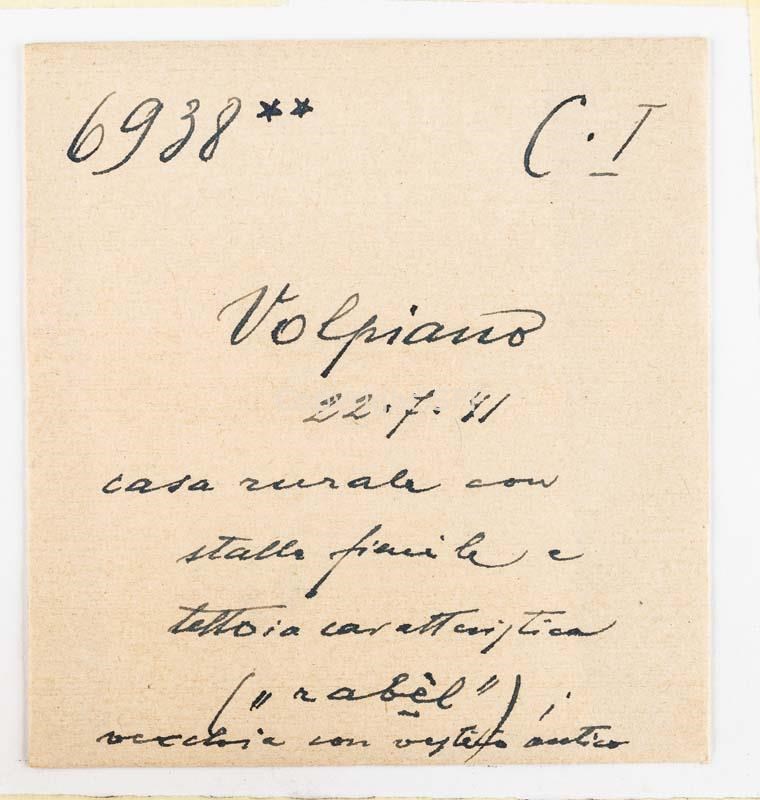 6938** C.I
Volpiano
22.7.41
casa rurale con
stalla fienile e
tettoia caratteristica
(„rabèl") ;
vecchia con vestito antico